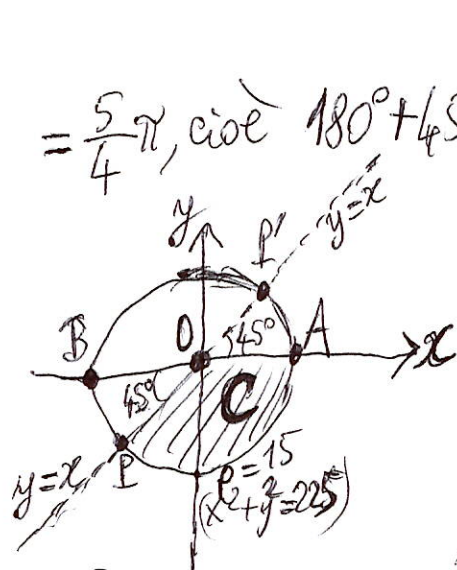 = 5/4 π, cioè 180°+45
y
y=x
P'
B
O
45°
A
x
45°
C
P
y=x
ρ=15
(x²+y²=225)